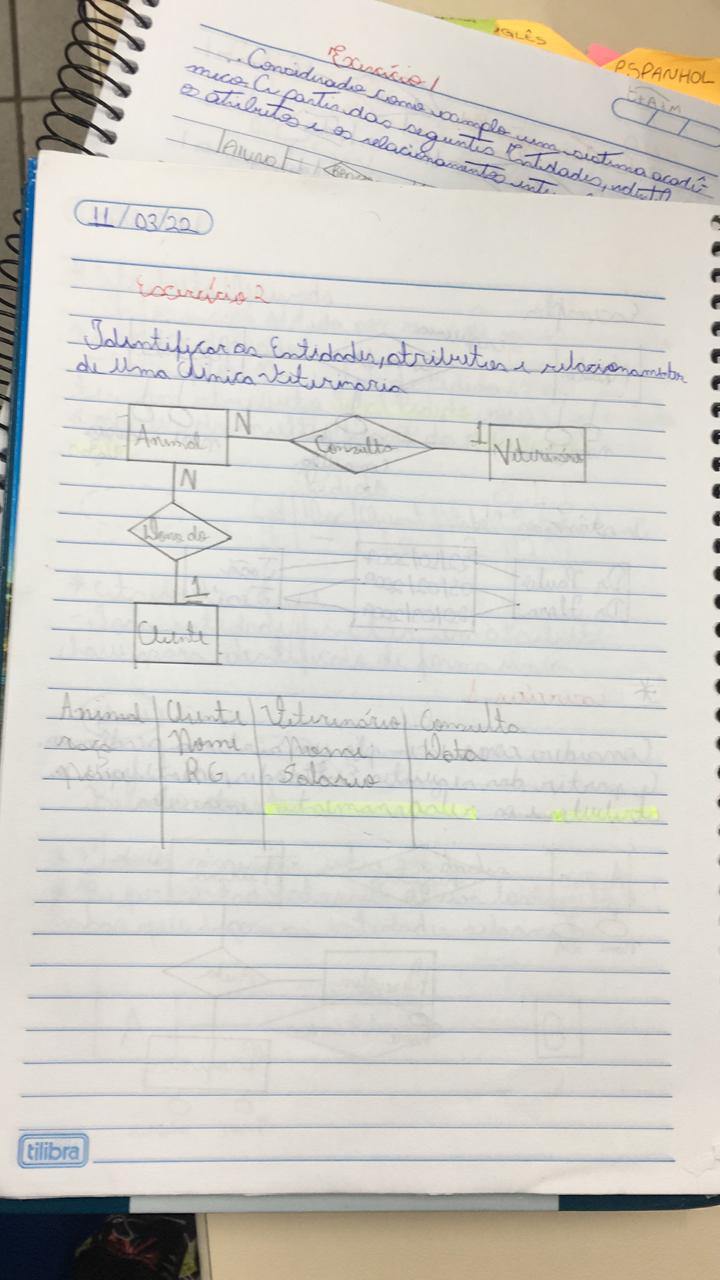 INGLÊS
ESPANHOL
Exercício 1
. Considerando como exemplo um sistema acadê-
mico. E a partir das seguintes Entidades,
os atributos e os relacionamentos entre
Aluno
11/03/22
Exercício 2
Identificar as Entidades, atributos e relacionamentos
de uma Clinica Veterinaria
Animal N Consulta 1 Veterinário
N
Dono do
1
Cliente
Animal Cliente Veterinário Consulta
raça Nome Nome Data
RG Salario
tilibra